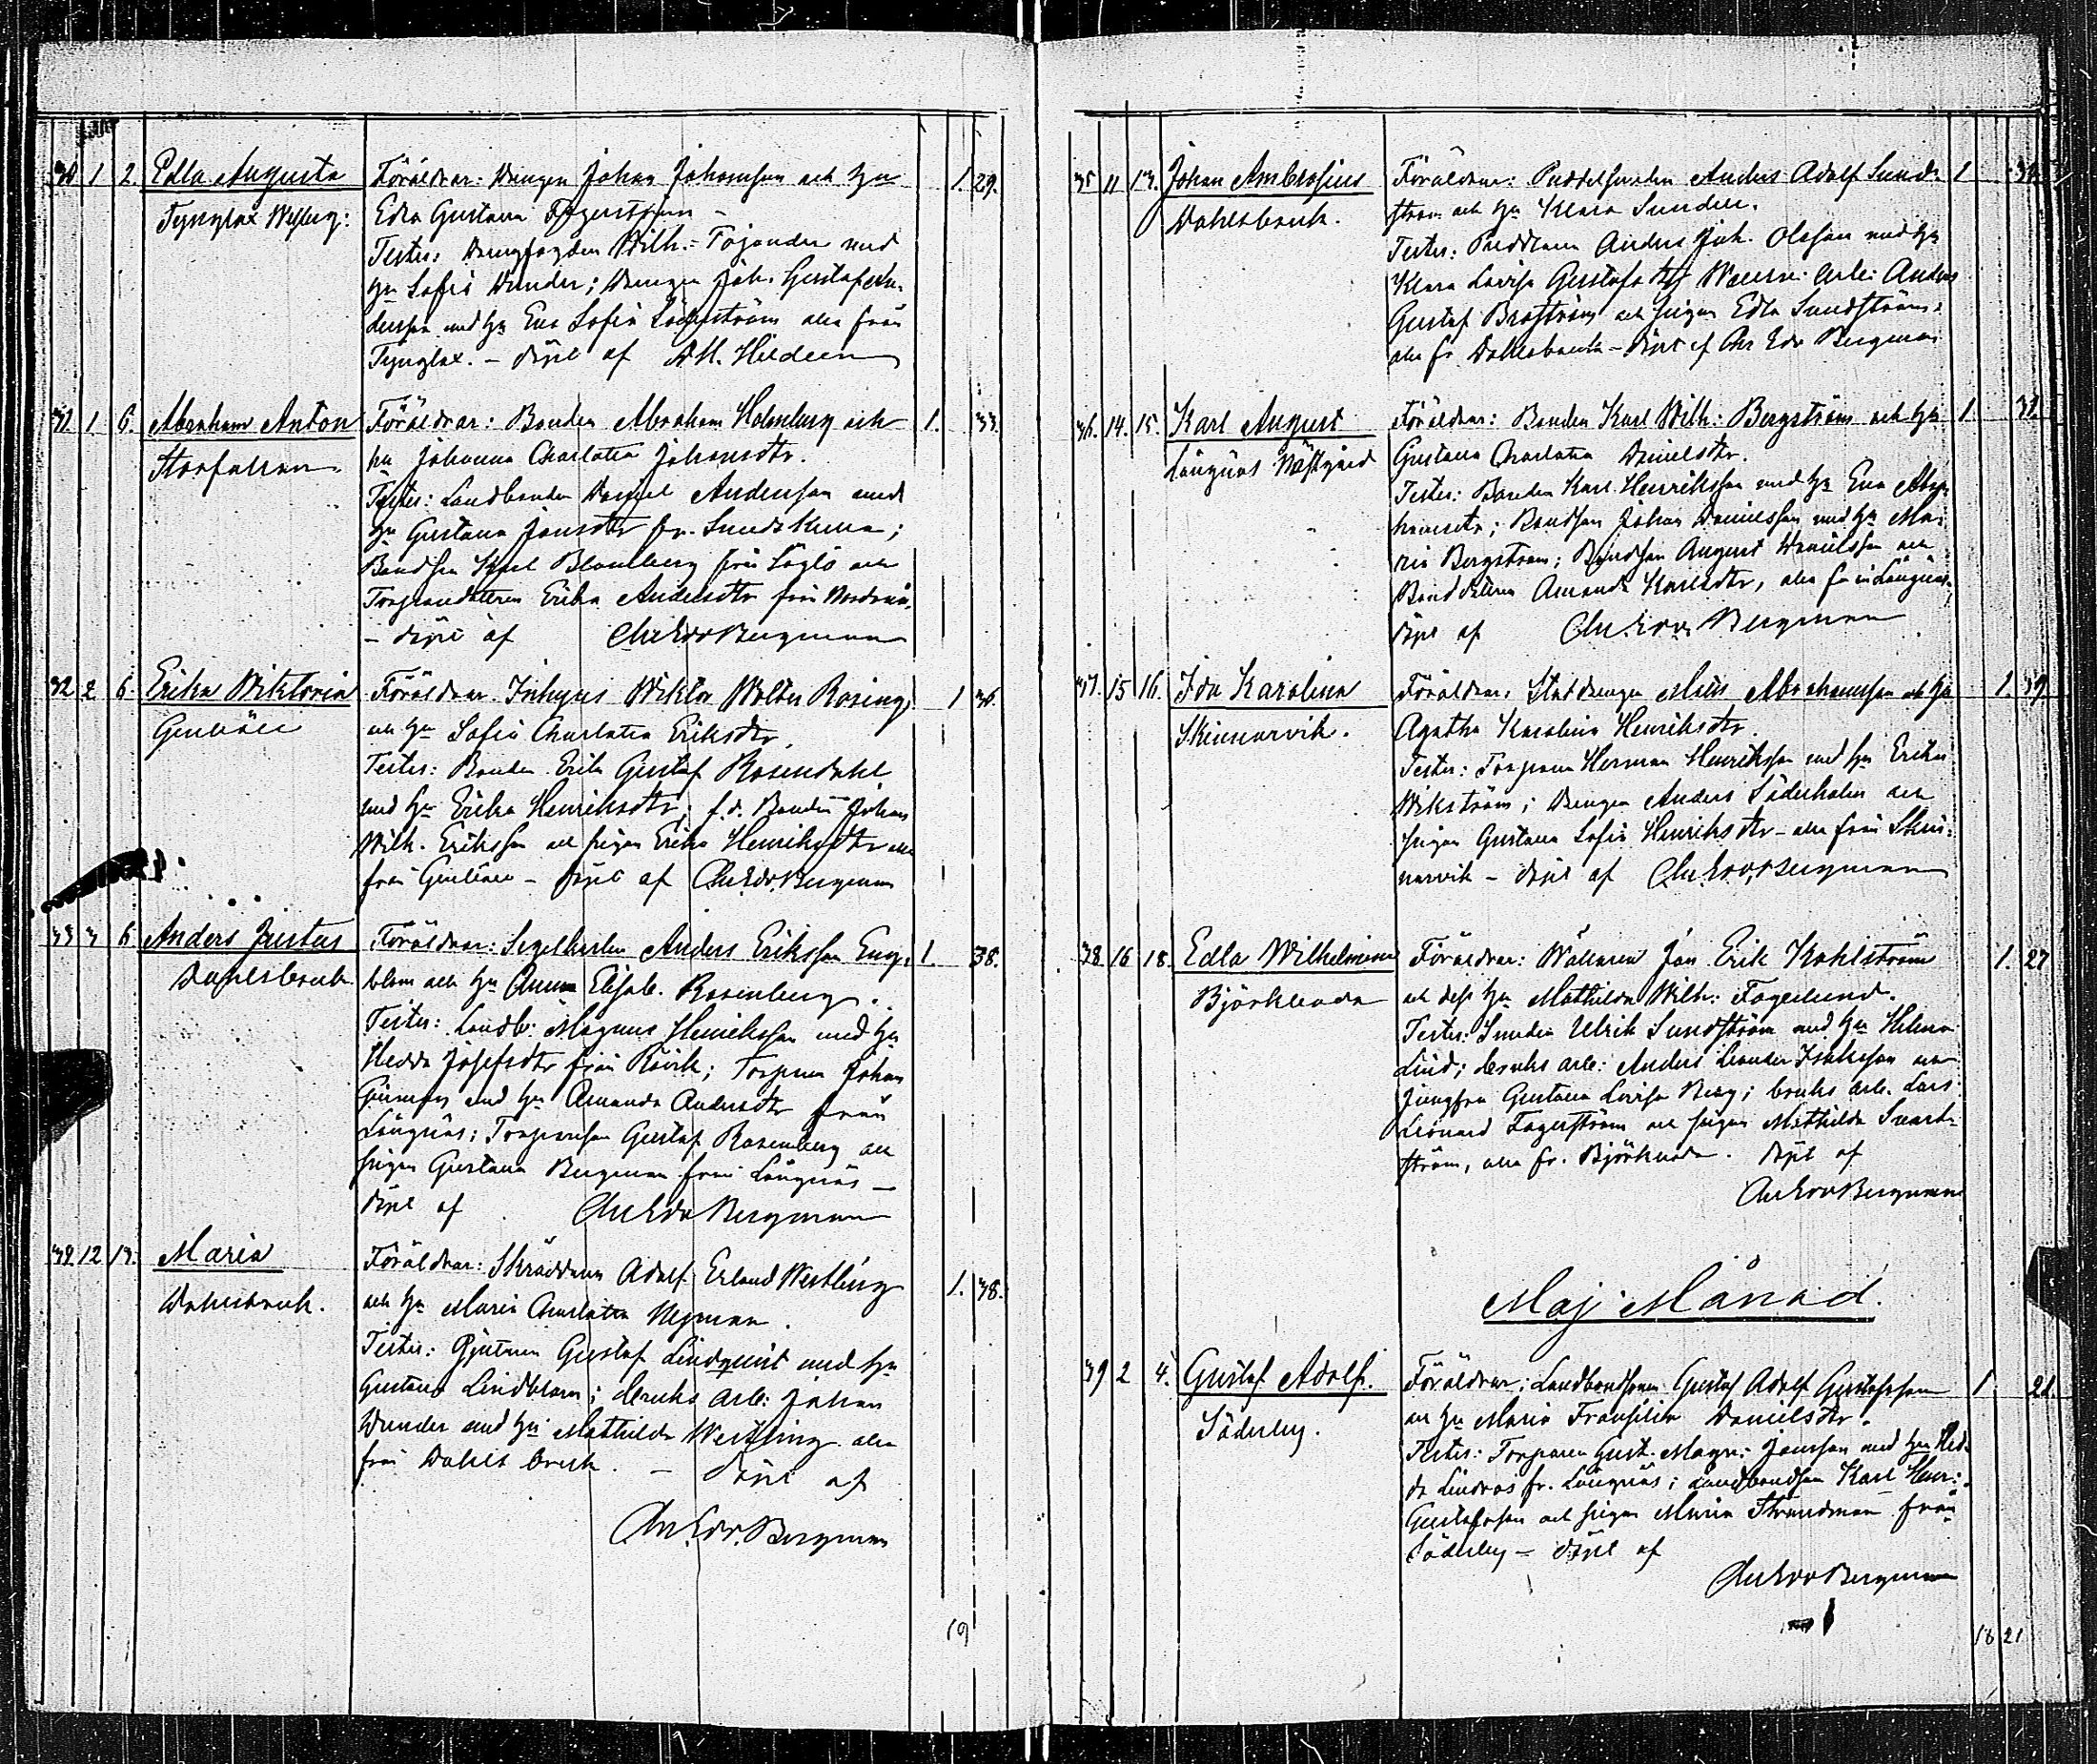 30 1 2. Edla Augusta Föräldrar: Drengen Johan Johansson och hu 1. 29.
Tynglax Westerg: Edla Gustava Fagerström –
Testes: Drengfogden Wilh. Töjander med
hu Sofia Wender; Drengen Joh. Gustaf An-
dersson med hu Eva Sofia Söderström alla från
Tynglax. – döpt af A.H. Hildeen
31 1. 6. Abraham Anton Föräldrar: Bonden Abraham Holmberg och 1. 33.
hu Johanna Charlotta Johansdtr.
Testes: Landbonden Daniel Andersson med
hu Gustava Jansdtr fr.
Bondson Karl Blomberg från och
Torparedottern Erika Andersdtr från
– döpt af Chr Edv Bergman
32 2 6. Erika Wiktoria Föräldrar: Inhyses Wiktor Wolter Rosing 1 36.
och hu Sofia Charlotta Eriksdtr.
Testes: Bonden Erik Gustaf Rosendahl
med hu Erika Henriksdtr; f.d. Bonden Johan
Wilh. Eriksson och pigan Erika Henriksdtr alla
från – döpt af Chr. Edv. Bergman
33 3 6 Anders Justus Föräldrar: Anders Eriksson Eng- 1. 38.
Dahlsbruk blom och hu Anna Elisab. Rosenberg.
Testes: Landb: Magnus Henriksson med hu
Hedda Josefsdtr från Rövik; Torparen Johan
med hu Amanda Andersdtr från
Långnäs; Torparson Gustaf Rosenberg och
pigan Gustava Bergman från Långnäs –
döpt af Chr Edv Bergman
34 12 13. Maria Föräldrar: Skräddaren Adolf Erland Westling 1. 38.
Dahlsbruk. och hu Maria Charlotta Nyman.
Testes: Gjutaren Gustaf Lindqvist med hu
Gustava Lindblom; bruks arb: Johan
Wender med hu Mathilda Westling alla
från Dahls bruk. – döpt af
Chr. Edv. Bergman
19
35 11 13. Johan Ambrosius Föräldrar: Anders Adolf Sund- 1
Dahlsbruk. ström och hu Klara Sundell.
Testes: Anders Joh. Olsson med hu
Klara Lovisa Gustafsdtr arb: Anders
Gustaf Broström och pigan Edla Sundström,
alla fr. Dahlsbruk – döpt af Chr Edv Bergman
36. 14. 15. Karl August Föräldrar: Bonden Karl Wilh: Bergström och hu 1.
Långnäs Västgård Gustava Charlotta Danielsdtr.
Testes: Bonden Karl Henriksson med hu Eva Abra-
hamsdtr; Bondson Johan Danielsson med hu Ma-
ria Bergström; Bondson August Danielsson och
Bonddottern Amanda Karlsdtr, alla från Långnäs,
döpt af Chr. Edv. Bergman
37. 15 16. Ida Karolina Föräldrar: Statdrengen Mats Abrahamsson och hu 1. 39.
Skinnarvik. Agatha Karolina Henriksdtr.
Testes: Torparen Herman Henriksson med hu Erika
Wikström; Drengen Anders Söderholm och
pigan Gustava Sofia Henriksdtr – alla från Skin-
narvik – döpt af Chr. Edv. Bergman
38. 16 18. Edla Wilhelmina Föräldrar: Wällaren Jan Erik Kohlström 1. 27
Björkboda och dess hu Mathilda Wilh: Fagerlund.
Testes: Smeden Ulrik Sundström med hu Helena
Lind; bruks arb: Anders Leander Isaksson och
jungfru Gustava Lovisa Berg; bruks arb. Lars
Leonard Fagerström och pigan Mathilda Svart-
ström, alla fr. Björkboda. döpt af
Chr Edv Bergman
Maj Månad.
39 2 4. Gustaf Adolf. Föräldrar: Landbondsonen Gustaf Adolf Gustafsson 1. 21.
Söderby. och hu Maria Fransilia Danielsdtr.
Testes: Torparen Gust. Magn: Jansson med hu Hed-
da Lindros fr. Långnäs; Landbondson Karl Henr:
Gustafsson och pigan Maria Strandman från
Söderby – döpt af
Chr Edv Bergman
18 21